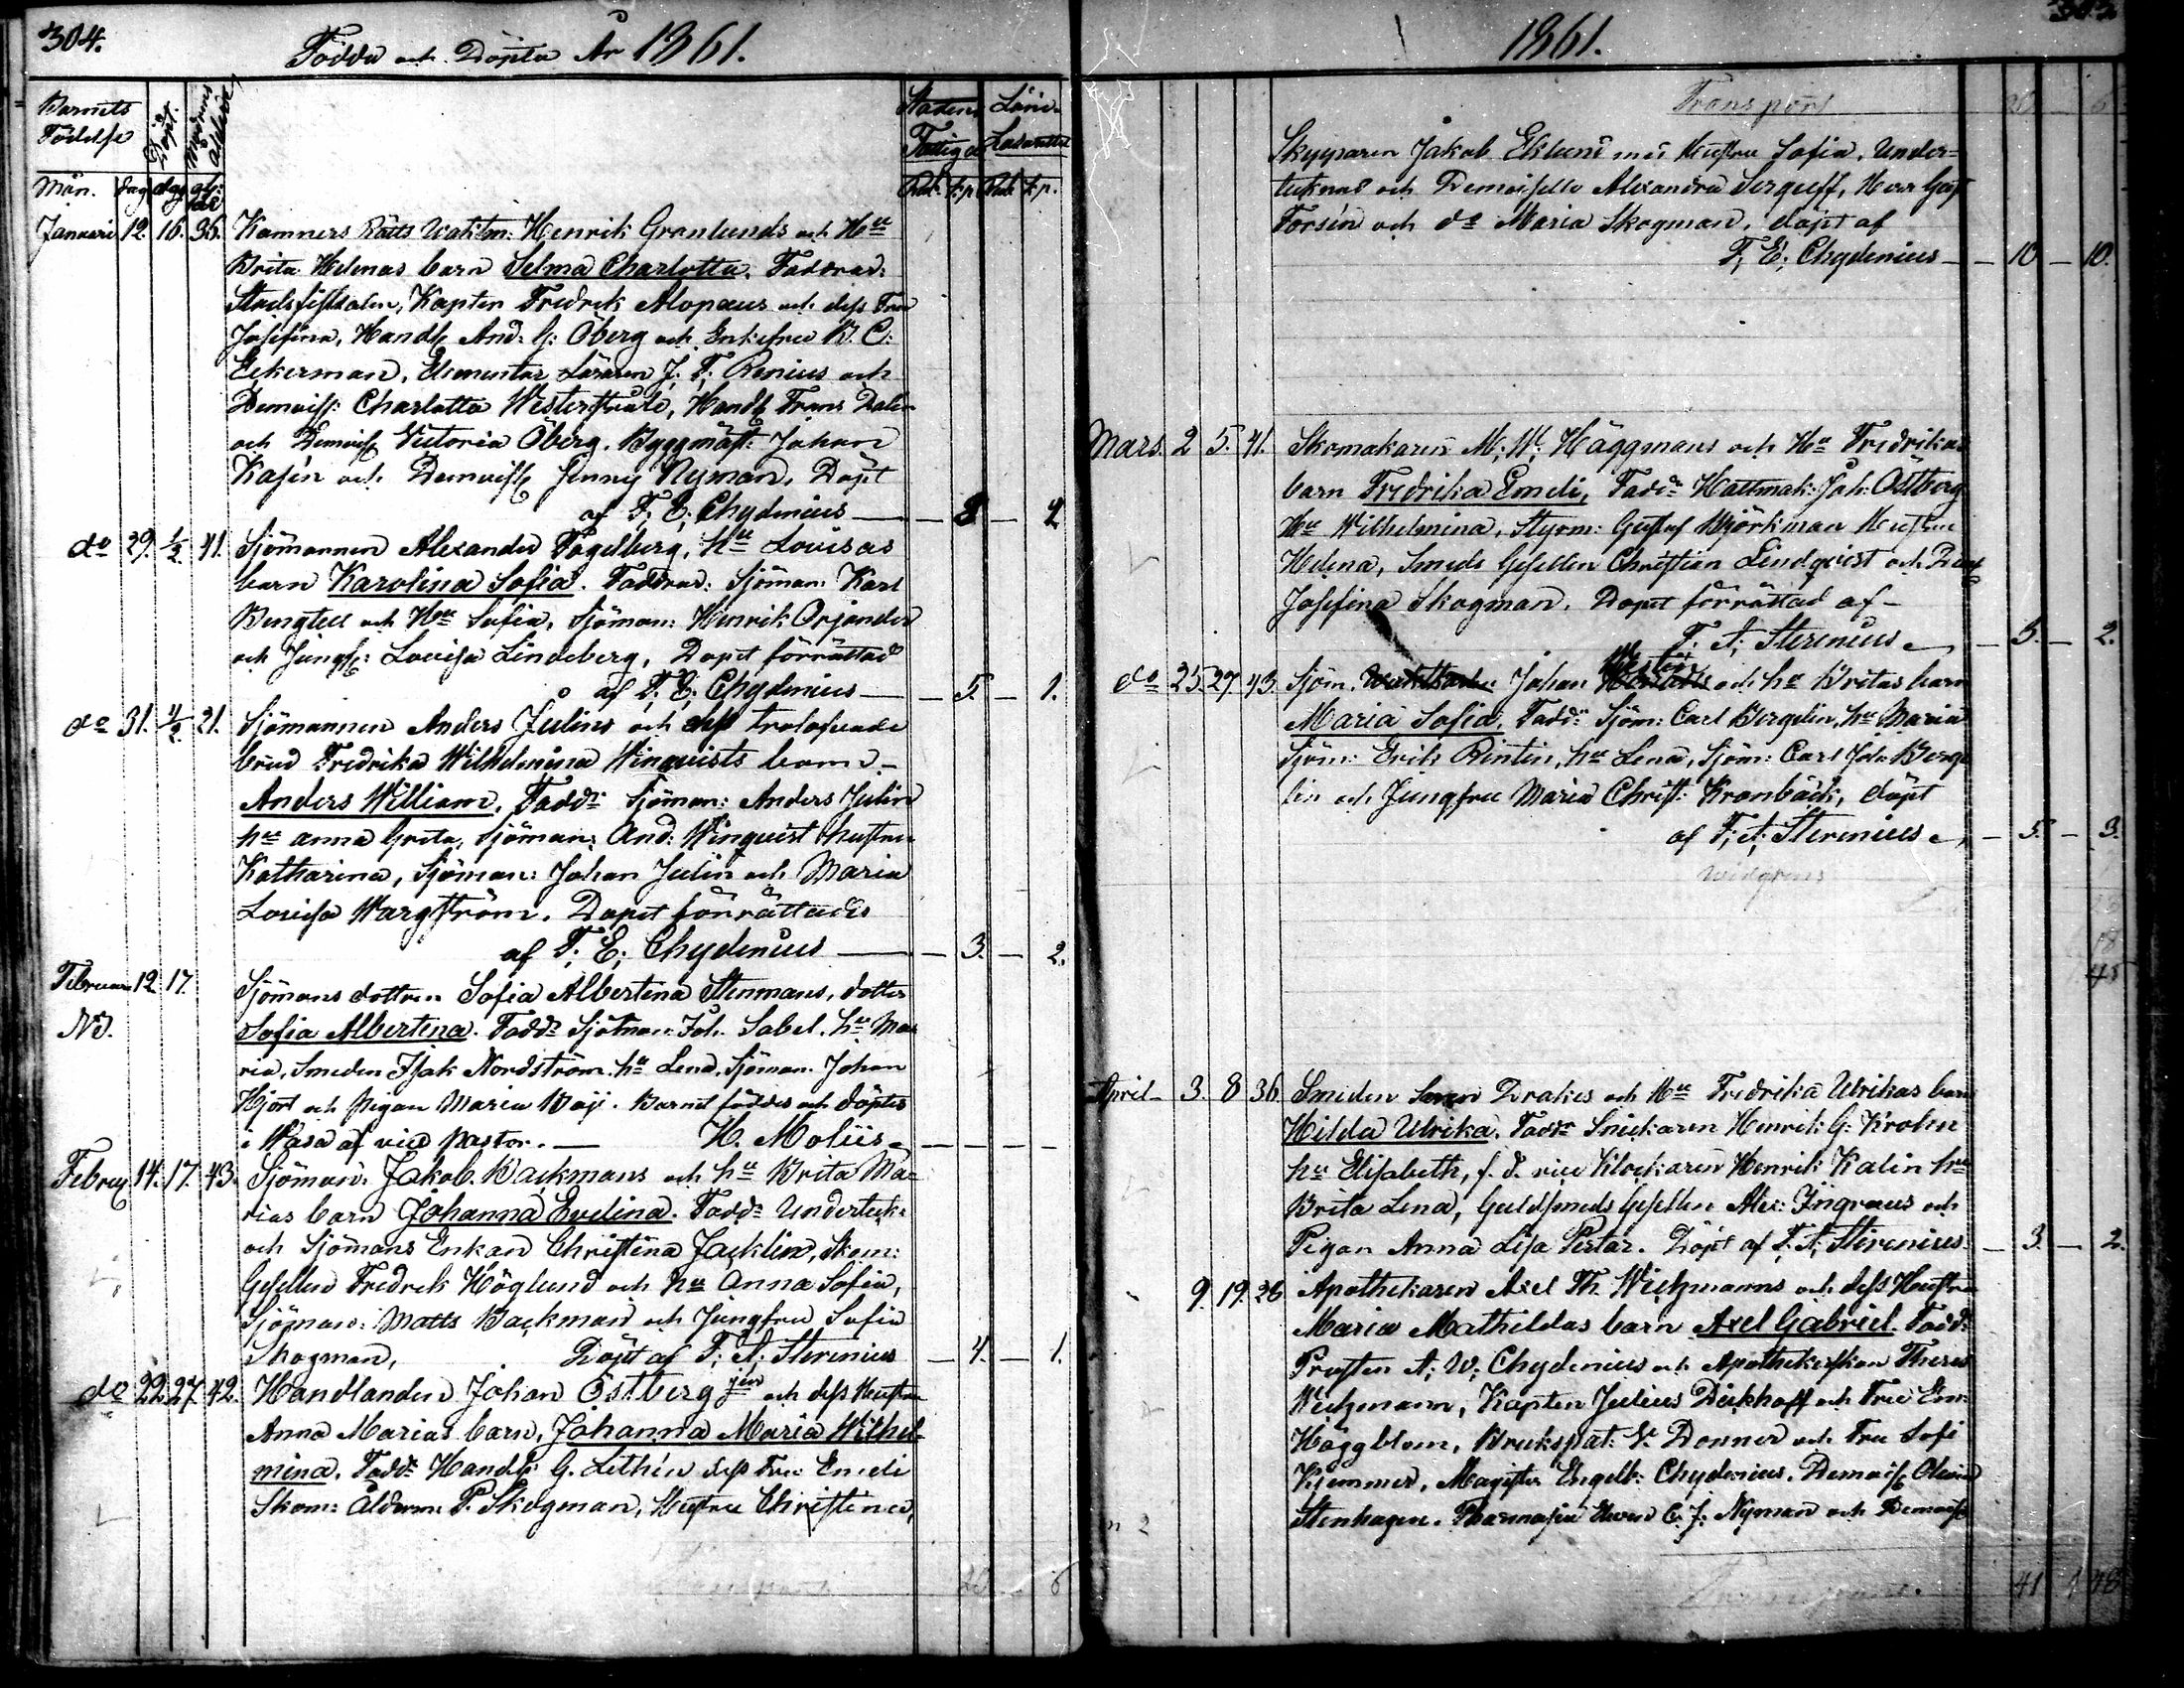 304.
Födde och Döpte År 1861.
Barnets
Födelse
Döpt.
Modrens
ålder
Stadens
Fattige
Läns
Lasarettet
Mån. dag dag
Rub. kp. Rub. kp.
Januari 12. 16. 36. Kamners Rätts Vaktm: Henrik Granlunds och Hu
Brita Helenas barn Selma Charlotta. Faddrar:
Stadsfiskalen, Kapten Fredrik Alopæus och dess Fru
Josefina, Handl And: G: Öberg och Enkefru B. C:
Eckerman, Elementar Läraren J. F. Renius och
Demoiss: Charlotta Westerstråle, Handl Frans Dalen
och Demoiss Victoria Öberg. Byggmäst: Johan
Kasén och Demoiss Jenny Nyman, Döpt
af F: E: Chydenius — 8 — 2
do 29. 1/2. 41. Sjömannen Alexander Fogelberg, hu Lovisas
barn Karolina Sofia. Faddrar: Sjöman: Karl
Bengtell och Hu Sofia, Sjöman: Henrik Orjander
och Jungf: Lovisa Lindeberg, Dopet förrättad
af F: E: Chydenius — 5. — 1.
do 31. 4/2. 21. Sjömannen Anders Julins och dess trolofvade
brud Fredrika Wilhelmina Winqvists barn
Anders William, Faddr: Sjöman: Anders Julin
hu Anna Greta, Sjöman: And: Winqvist hustru
Katharina, Sjöman: Johan Julin och Maria
Lovisa Wargström. Dopet förrättades
af F: E: Chydenius — 3. — 2.
Februari 12 17. Sjömans dottren Sofia Albertina Stenmans, dotter
NB. Sofia Albertina. Faddr Sjöman: Joh. Sabel, hu Ma
ria, Smeden Isak Nordström, hu Lena, Sjöman Johan
Hjort och Pigan Maria Böj. Barnet föddes och döptes
i Wasa af vice Pastor. — H. Moliis
Februaj 14. 17. 43. Sjöman: Jakob Backmans och hu Brita Ma-
rias barn Johanna Evelina. Faddr Underteck:
och Sjömans Enkan Christina Jacklin, Skom:
Gesellen Fredrik Höglund och hu Anna Sofia,
Sjöman: Matts Backman och Jungfru Sofia
Skogman, Döpt af F: A: Sterenius — 4. — 1.
do 22. 27. 42. Handlanden Johan Östberg jun och dess Hustru
Anna Marias barn, Johanna Maria Wilhel-
mina. Faddr Handl: G. Lithén dess Fru Emeli
Skom: Ålderm: P. Skogman, Hustru Christina,
1861.
Transport
Skepparen Jakob Eklund med Hustru Sofia, Under-
tecknad och Demoiselle Alexandra Sergeeff, Herr Gust
Forsén och do Maria Skogman, döpt af
F: E: Chydenius — 10 — 10.
Mars. 2 5. 41. Skomakaren M: W: Häggmans och Hu Fredrikas
barn Fredrika Emeli, Faddr Hattmak: Joh: Östberg
Hu Wilhelmina, Styrm: Gustaf Björkman Hustru
Helena, Smeds Gesellen Christian Lindqvist och
Josefina Skogman. Dopet förrättad af
F. A: Sterenius — 5. — 2.
do 25. 27. 43. Sjöm. Johan och hu Britas barn
Maria Sofia. Faddr Sjöm: Carl Bergelin, hu Maria
Sjöm: Erik Rintin, hu Lena, Sjöm: Carl Joh. Berge
lin och Jungfru Maria Christ: Kronbäck, döpt
af F: A: Sterenius — 5. — 3.
45
April 3. 8 36. Smeden Drakes och Hu Fredrika Ulrikas barn
Hilda Ulrika. Faddr Snickaren Henrik G: Krohn
hu Elisabeth, f. d. vice Klockaren Henrik Kalin hu
Brita Lena, Guldsmeds Gesellen Alex: Ingraeus och
Pigan Anna Lisa Pertar. Döpt af F. A: Sterenius — 3. — 2.
9. 19. 26 Apothekaren Axel Th. Wichmanns och dess Hustru
Maria Mathildas barn Axel Gabriel. Faddr
Prosten A: W: Chydenius och Apothekerskan Therese
Wichmann, Kapten Julius Dickhoff och Fru Em:
Häggblom, Brukspat: V. Donner och Fru Sofi
Kjemmer, Magister Engelb: Chydenius, Demoiss Olivia
Stenhagen. Farmasie Eleven C. J: Nyman och Demoiss
41